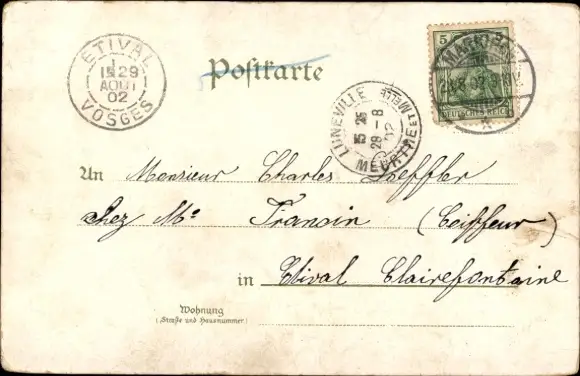 ETIVAL
1
15 29
AOUT
02
VOSGES
Postkarte
LUNEVILLE
MEURTHE ET MLLE
15 25
29 - 8
02
5
DEUTSCHES REICH
An Monsieur Charles
chez Mr. Francin (Coiffeur)
in Etival Clairefontaine
Wohnung
(Straße und Hausnummer)